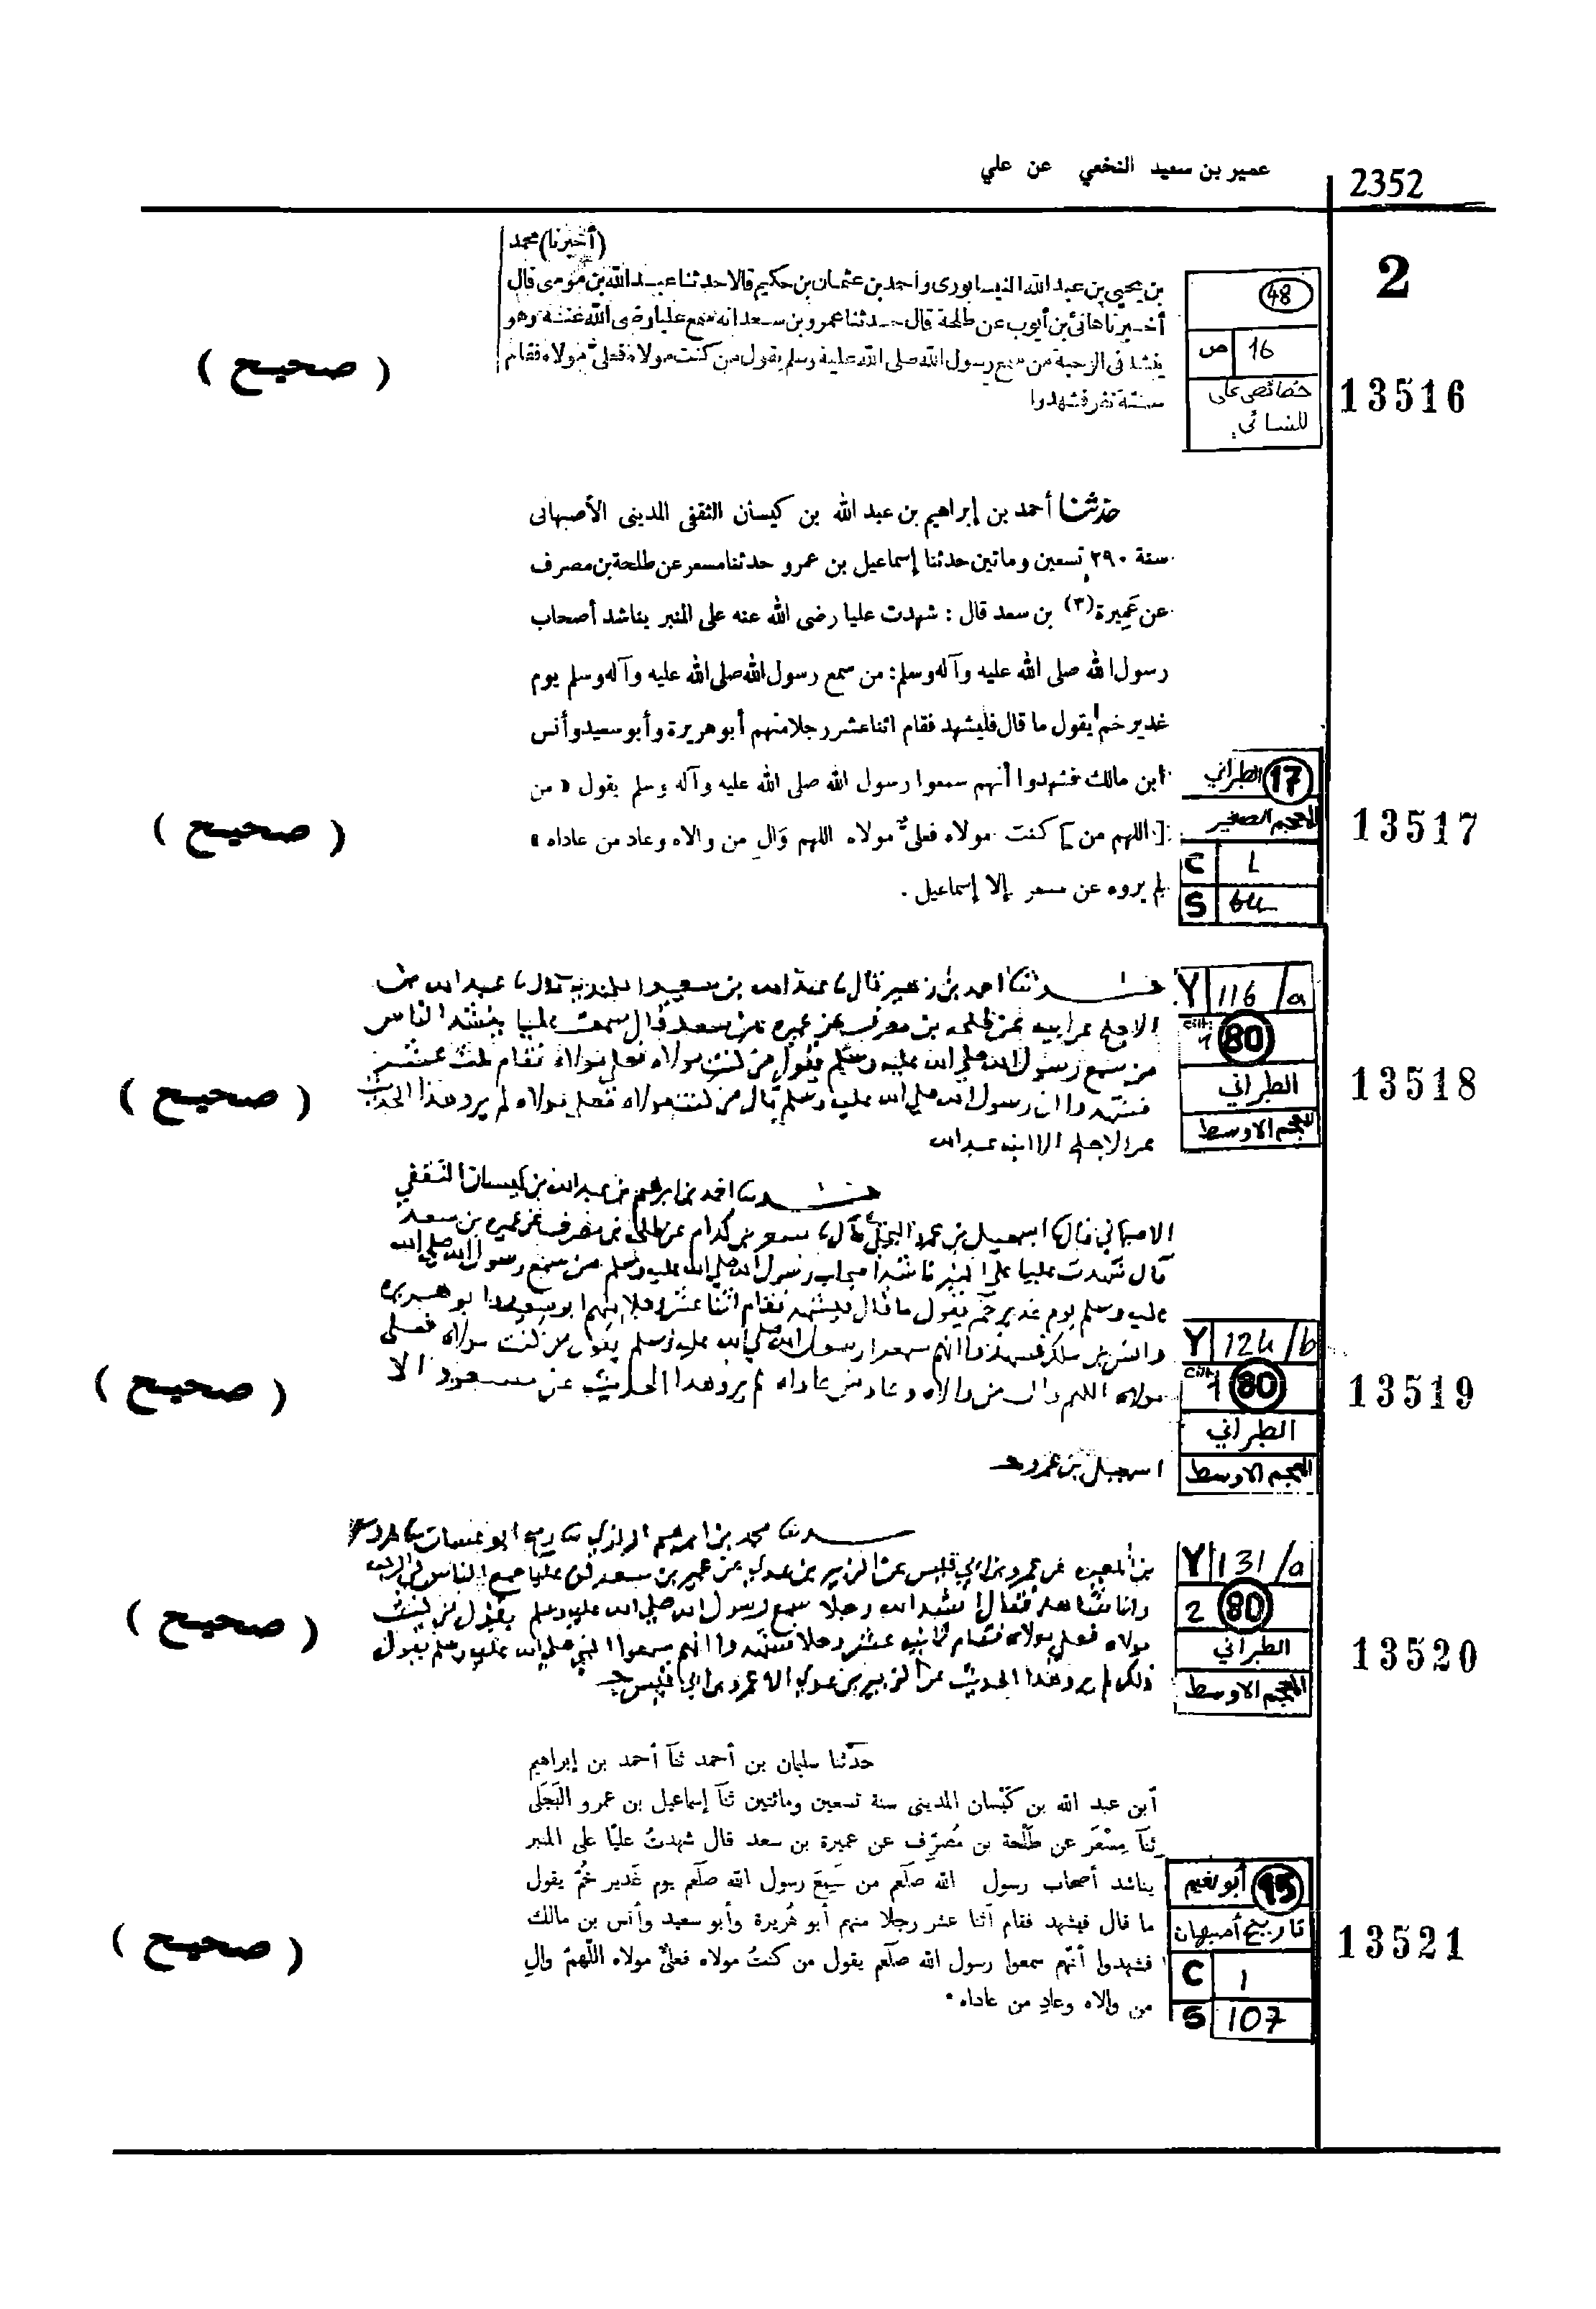 2352
عمير بن سعيد النخعي عن علي
2
(أخبرنا) محمد
بن يحيى بن عبد الله النيسابورى وأحمد بن عثمان بن حكيم قالا حدثنا عبيد الله بن موسى قال
أخبرنا هانئ بن أيوب عن طلحة قال حدثنا عمرو بن سعد انه سمع عليا رضى الله عنه وهو
ينشد فى الرحبة من سمع رسول الله صلى الله عليه وسلم يقول من كنت مولاه فعلى مولاه فقام
ستة نفر فشهدوا
48
ص 16
خصائص علي
للنسائي
13516
( صحيح )
حدثنا أحمد بن إبراهيم بن عبد الله بن كيسان الثقفى المدينى الأصبهانى
سنة ٢٩٠ تسعين ومائتين حدثنا إسماعيل بن عمرو حدثنا مسعر عن طلحة بن مصرف
عن عَمِيرة (٣) بن سعد قال : شهدت عليا رضى الله عنه على المنبر يناشد أصحاب
رسول الله صلى الله عليه وآله وسلم : من سمع رسول الله صلى الله عليه وآله وسلم يوم
غدير خم يقول ما قال فليشهد فقام اثنا عشر رجلا منهم أبو هريرة وأبو سعيد وأنس
ابن مالك فشهدوا أنهم سمعوا رسول الله صلى الله عليه وآله وسلم يقول « من
[ اللهم من ] كنت مولاه فعلىٌّ مولاه اللهم وَالِ من والاه وعاد من عاداه »
لم يروه عن مسعر إلا إسماعيل .
17 الطبراني
المعجم الصغير
C 1
S 64
13517
( صحيح )
حدثنا احمد بن زهير قال نا عبد الله بن سعيد الكندي قال نا عبد الله بن
الاجلح عن ابيه عن طلحه بن مصرف عن عميره بن سعد قال سمعت عليا ينشد الناس
من سمع رسول الله صلي الله عليه وسلم يقول من كنت مولاه فعلي مولاه فقام ثلث عشر
فشهدوا ان رسول الله صلي الله عليه وسلم قال من كنت مولاه فعلي مولاه لم يرو هذا الحديث
عن الاجلح الا ابنه عبد الله
Y 116/a
cilt: 1 80
الطبراني
المعجم الاوسط
13518
( صحيح )
حدثنا احمد بن ابراهيم بن عبد الله بن كيسان الثقفي
الاصبهاني قال نا اسمعيل بن عمرو البجلي قال نا مسعر بن كدام عن طلحة بن مصرف عن عميره بن سعد
قال شهدت عليا علي المنبر ناشد اصحاب رسول الله صلي الله عليه وسلم من سمع رسول الله صلي الله
عليه وسلم يوم غدير خم يقول ما قال فليشهد فقام اثنا عشر رجلا منهم ابو سعيد وابو هريره
وانس بن ملك فشهدوا انهم سمعوا رسول الله صلي الله عليه وسلم يقول من كنت مولاه فعلي
مولاه اللهم وال من والاه وعاد من عاداه لم يرو هذا الحديث عن مسعر الا
اسمعيل بن عمرو
Y 124/b
cilt: 1 80
الطبراني
المعجم الاوسط
13519
( صحيح )
حدثنا محمد بن ابراهيم الرازي
بن المغيره عن عمرو بن ابي قيس عن الزبير بن عدي عن عمير بن سعد ان عليا جمع الناس في الرحبه
وانا شاهد فقال انشد الله رجلا سمع رسول الله صلي الله عليه وسلم يقول من كنت
مولاه فعلي مولاه فقام ثمانيه عشر رجلا فشهدوا انهم سمعوا النبي صلي الله عليه وسلم يقول
ذلك لم يرو هذا الحديث عن الزبير بن عدي الا عمرو بن ابي قيس
Y 131/a
2 80
الطبراني
المعجم الاوسط
13520
( صحيح )
حدّثنا سليمان بن أحمد ثنآ أحمد بن إبراهيم
آبن عبد الله بن كَيْسان المدينى سنة تسعين ومائتين ثنآ إسماعيل بن عمرو البَجَلى
ثنآ مِسْعَر عن طَلْحة بن مُصَرِّف عن عميرة بن سعد قال شهدتُ عليًا على المنبر
يناشد أصحاب رسول الله صلَعم من سَمِعَ رسول الله صلَعم يوم غَدير خُمّ يقول
ما قال فيشهد فقام آثنا عشر رجلًا منهم أبو هُريرة وأبو سعيد وأنس بن مالك
فشهدوا أنّهم سمعوا رسول الله صلَعم يقول من كنتُ مولاه فعلىٌّ مولاه اللّهمّ والِ
من والاه وعادِ من عاداه •
95 أبو نعيم
تاريخ أصبهان
C 1
S 107
13521
( صحيح )